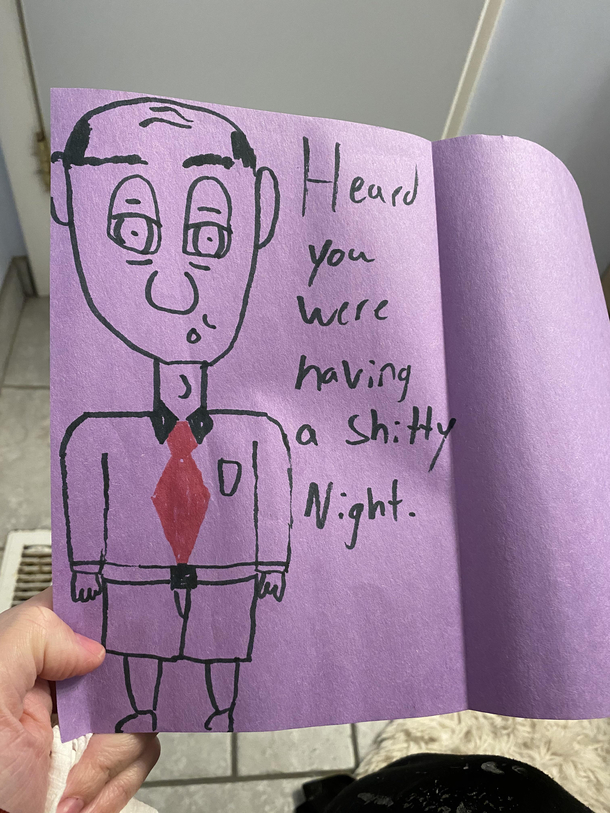 Heard
you
were
having
a shitty
Night.